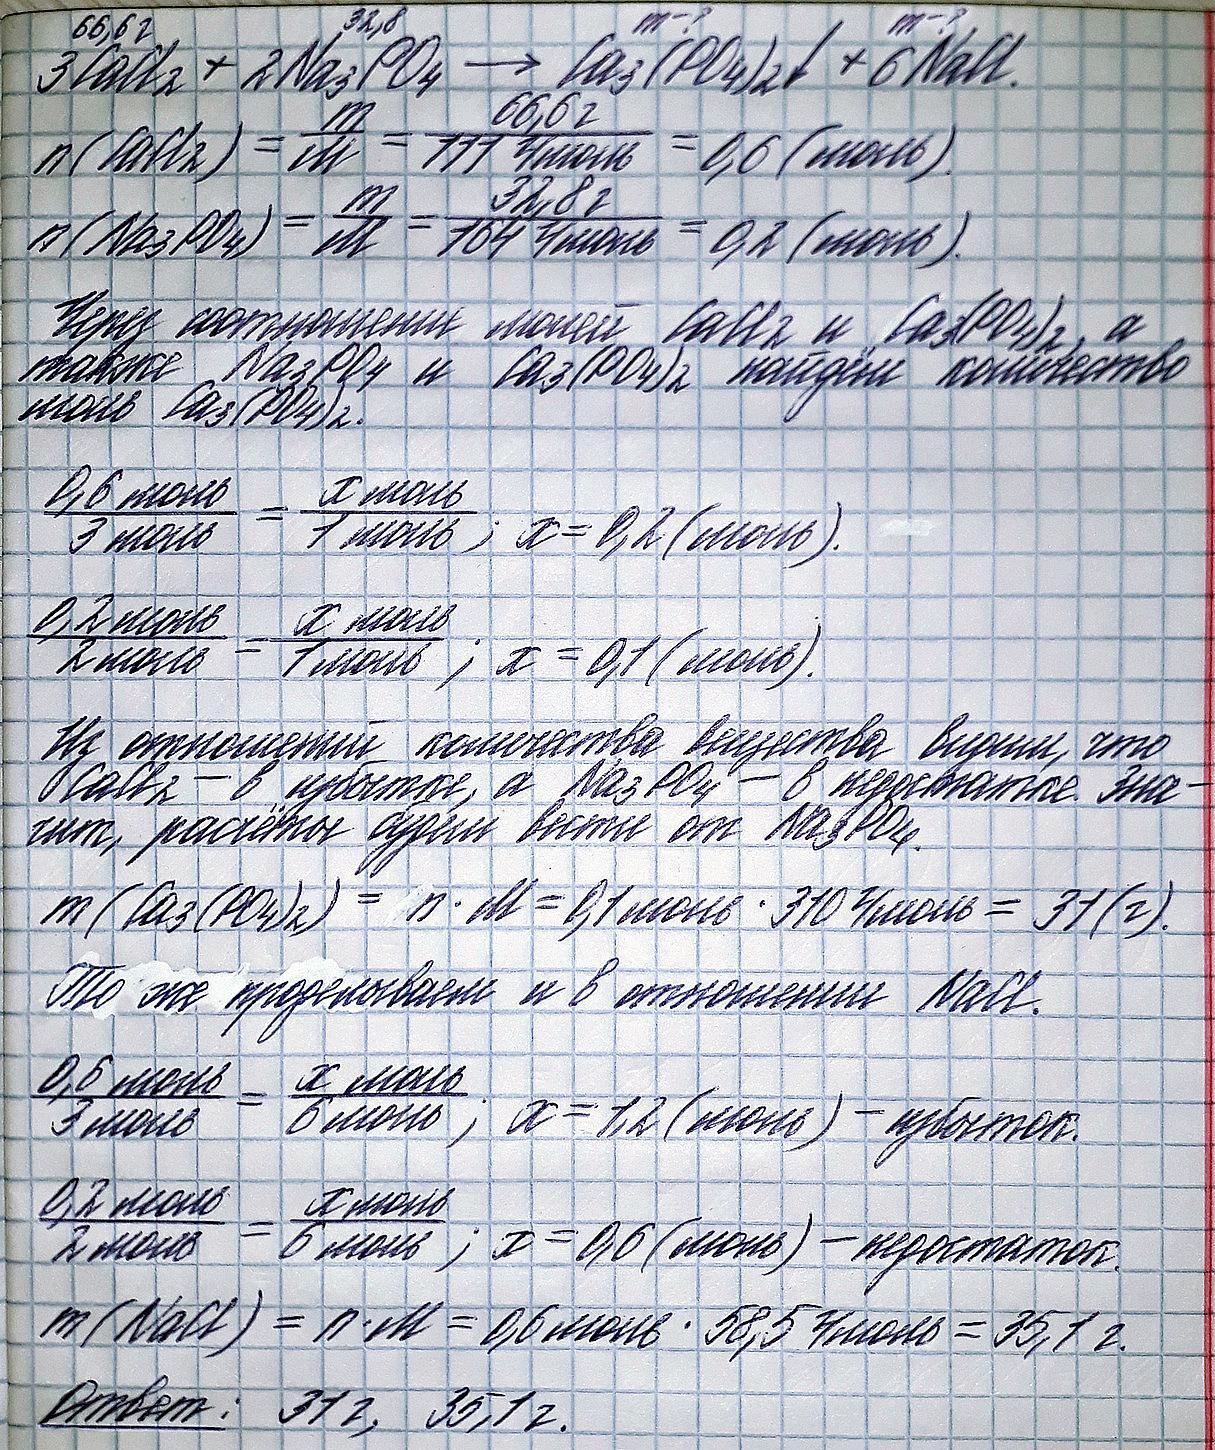 66,6 г 32,8 m-? m-?
3CaCl₂ + 2Na₃PO₄ → Ca₃(PO₄)₂↓ + 6NaCl.
n(CaCl₂) = m/M = 66,6 г/111 г/моль = 0,6 (моль).
n(Na₃PO₄) = m/M = 32,8 г/164 г/моль = 0,2 (моль).
Через соотношения молей CaCl₂ и Ca₃(PO₄)₂, а
также Na₃PO₄ и Ca₃(PO₄)₂ найдём количество
моль Ca₃(PO₄)₂.
0,6 моль/3 моль = x моль/1 моль; x = 0,2 (моль).
0,2 моль/2 моль = x моль/1 моль; x = 0,1 (моль).
Из отношений количества вещества видим, что
CaCl₂ – в избытке, а Na₃PO₄ – в недостатке. Зна-
чит, расчёты будем вести от Na₃PO₄.
m(Ca₃(PO₄)₂) = n · M = 0,1 моль · 310 г/моль = 31 (г).
То же проделываем и в отношении NaCl.
0,6 моль/3 моль = x моль/6 моль; x = 1,2 (моль) – избыток.
0,2 моль/2 моль = x моль/6 моль; x = 0,6 (моль) – недостаток.
m(NaCl) = n · M = 0,6 моль · 58,5 г/моль = 35,1 г.
Ответ: 31 г, 35,1 г.